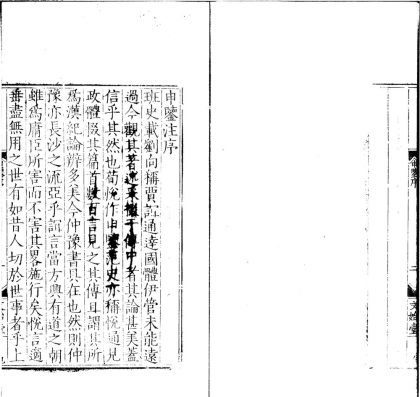 申鑒注序
班史載劉向稱賈誼通達國體伊管未能遠
過今觀其著述未撤于傳中者其論甚美蓋
信乎其然也荀悅作申鑒范史亦稱悅通見
政體掇其篇首數百言見之其傳且謂其所
為漢紀論辨多美今仲豫書具在也然則仲
豫亦長沙之流亞乎誼言當方興有道之朝
雖為庸臣所害而不害其畧施行矣悅言適
垂盡無用之世有如昔人切於世事者乎上
文始堂